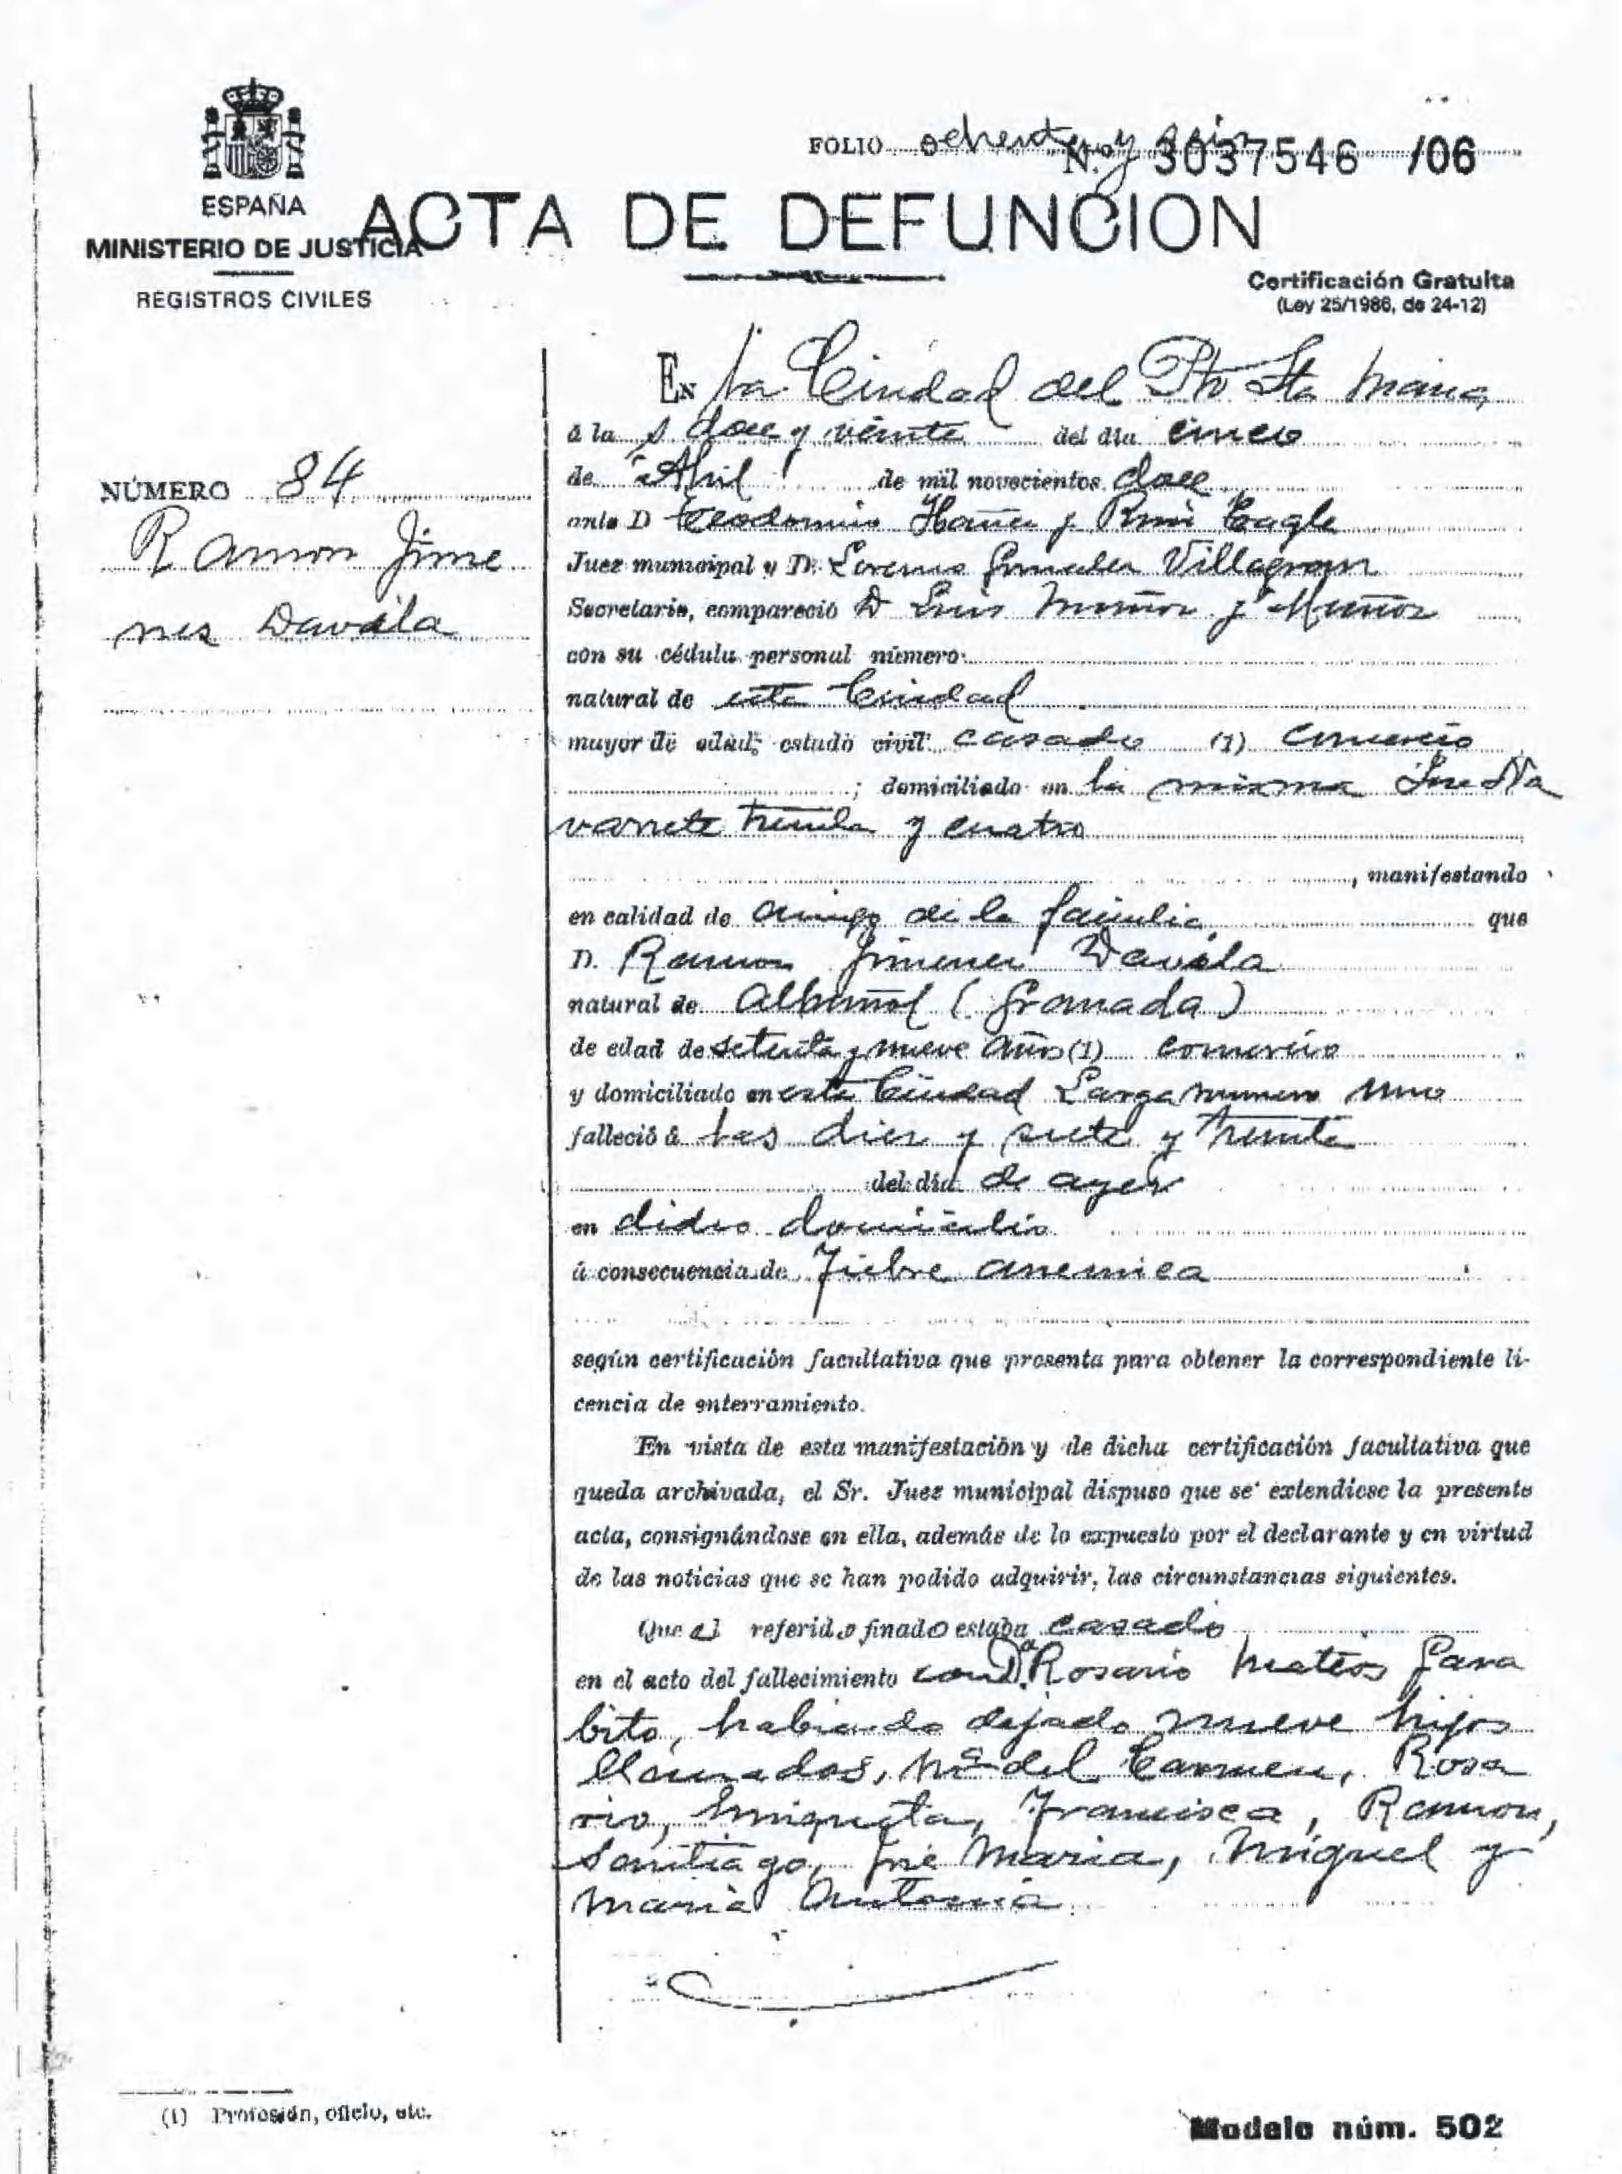 FOLIO ochenta y seis
N.º 3037546 /06
ESPAÑA
MINISTERIO DE JUSTICIA
REGISTROS CIVILES
ACTA DE DEFUNCION
Certificación Gratuita
(Ley 25/1986, de 24-12)
NÚMERO 84
Ramon Jime
nez Davila
EN la Ciudad del Pto Sta Maria
á las doce y veinte del dia cinco
de Abril de mil novecientos doce
ante D Teodomiro Ibañez y Tagle
Juez municipal y D. Lorenzo Gonzalez Villagran
Secretario, compareció D Luis Muñoz y Muñoz
con su cédula personal número
natural de esta Ciudad
mayor de edad, estado civil casado (1) comercio
; domiciliado en la misma Ine Na
varrete treinta y cuatro
, manifestando
en calidad de amigo de la familia que
D. Ramon Jimenez Davila
natural de Albuñol (Granada)
de edad de setenta y nueve años (1) comercio
y domiciliado en esta Ciudad Larga numero uno
falleció á las diez y siete y treinta
del dia de ayer
en dicho domicilio
á consecuencia de Fiebre anemica
según certificación facultativa que presenta para obtener la correspondiente li-
cencia de enterramiento.
En vista de esta manifestación y de dicha certificación facultativa que
queda archivada, el Sr. Juez municipal dispuso que se extendiese la presente
acta, consignándose en ella, además de lo expuesto por el declarante y en virtud
de las noticias que se han podido adquirir, las circunstancias siguientes.
Que el referido finado estaba casado
en el acto del fallecimiento con Dª Rosario Mateos Gara
bito, habiendo dejado nueve hijos
llamados, Mª del Carmen, Rosa
rio, Enriqueta, Francisca, Ramon,
Santiago, José Maria, Miguel y
Maria Antonia
(1) Profesión, oficio, etc.
Modelo núm. 502